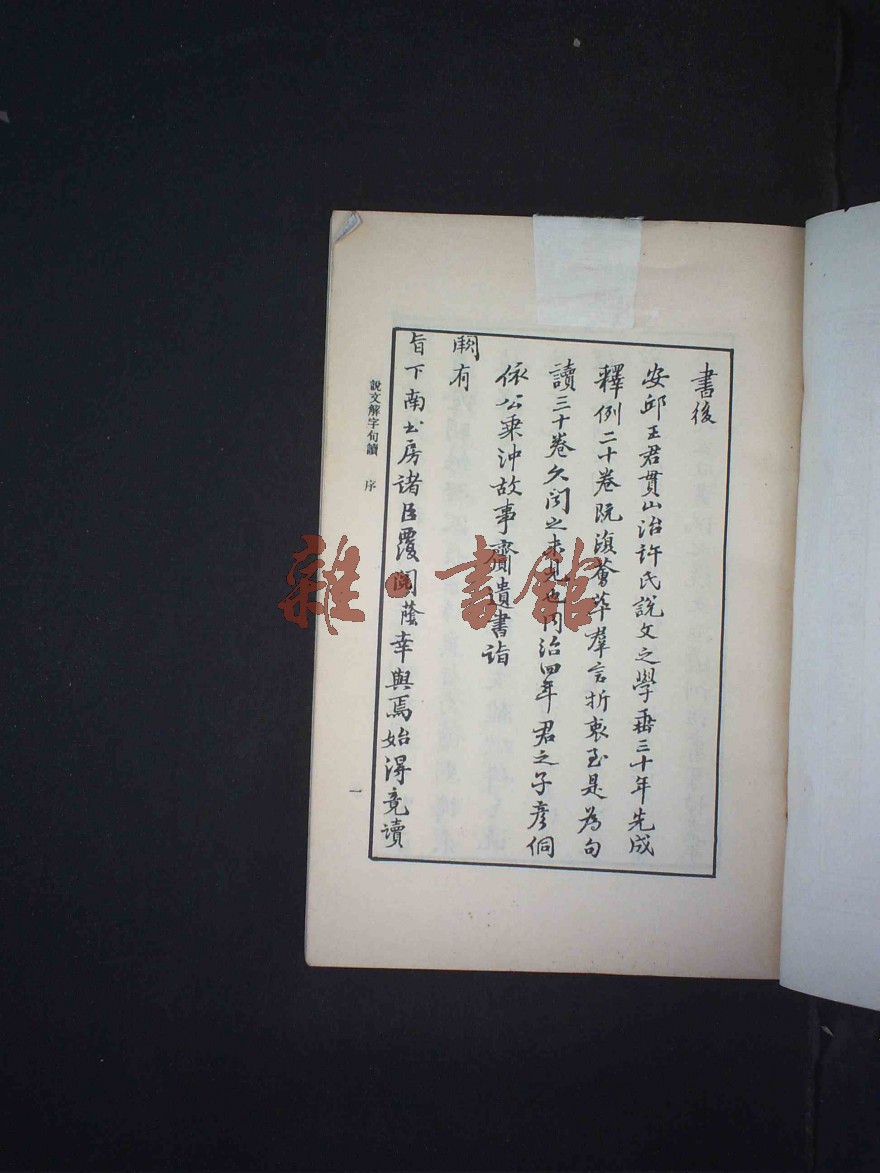 書後
安邱王君貫山治許氏說文之學垂三十年先成
釋例二十卷既復薈萃羣言折衷至是為句
讀三十卷久聞之未見也同治四年君之子彥侗
依公乘沖故事齎遺書詣
闕有
旨下南書房諸臣覆閱蔭幸與焉始得竟讀
說文解字句讀 序
一
雜·書館